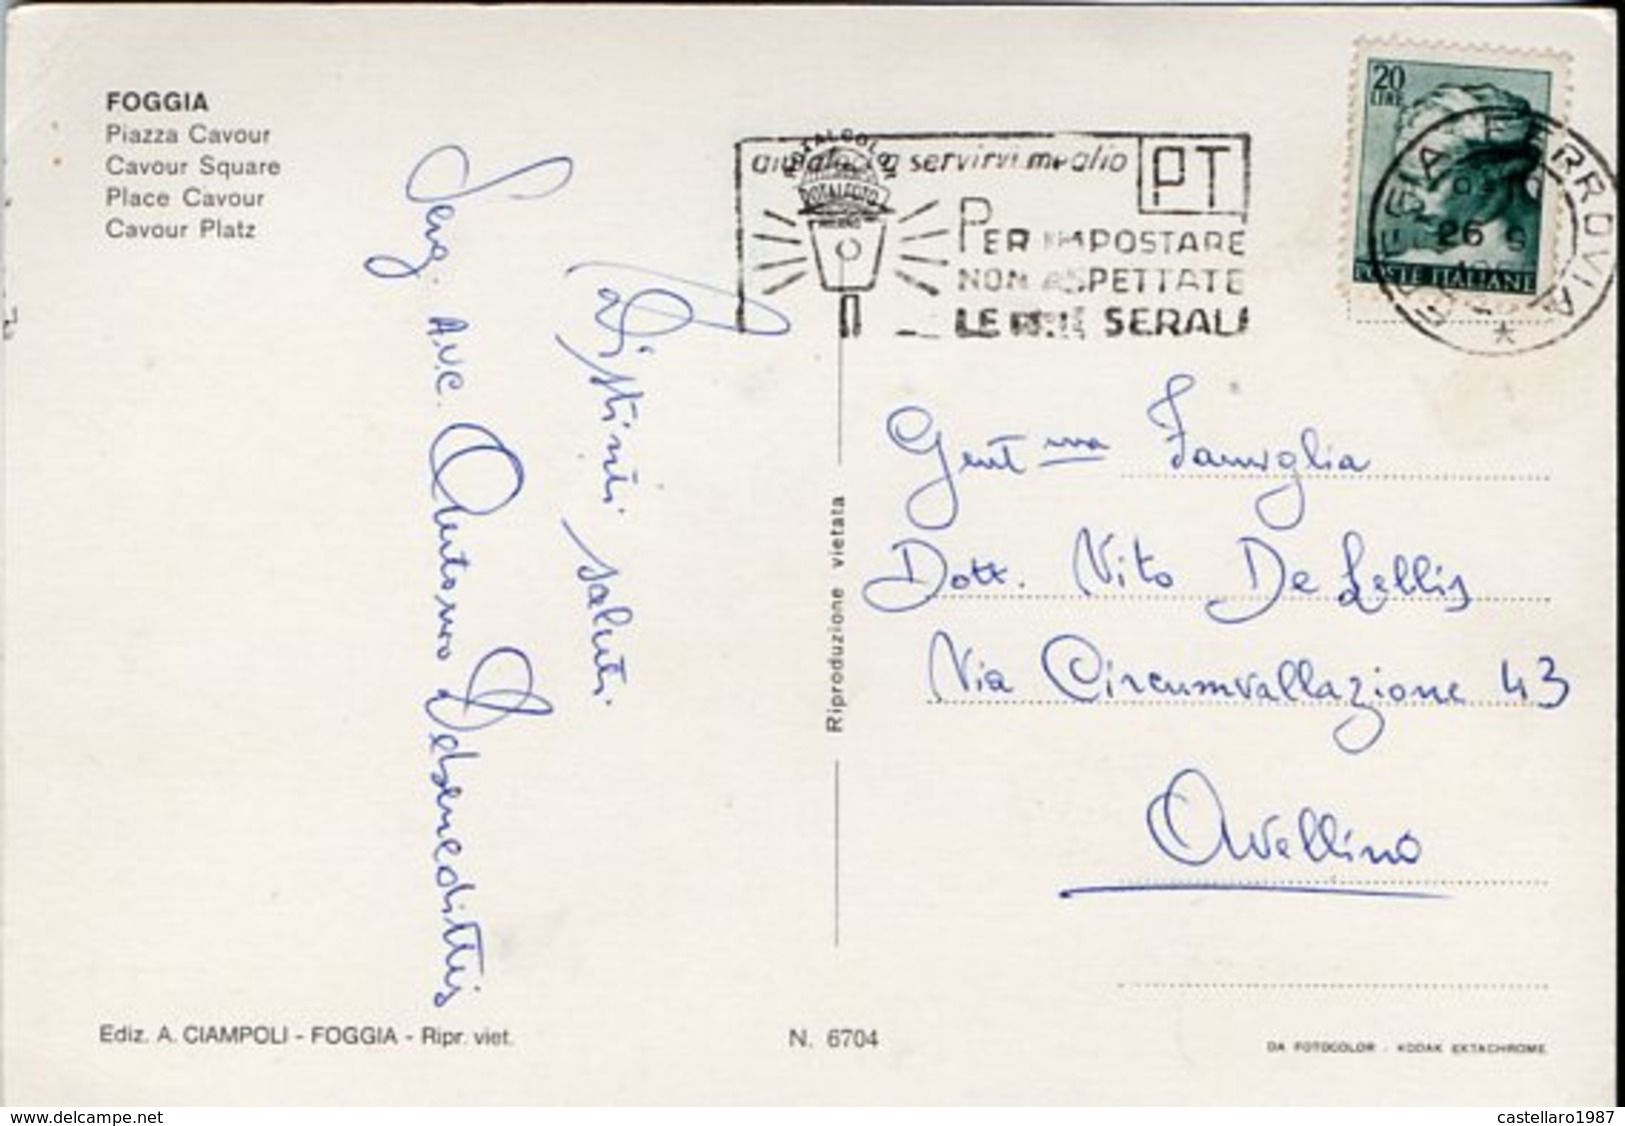 FOGGIA
Piazza Cavour
Cavour Square
Place Cavour
Cavour Platz
Distinti saluti.
Avv. Antonio Debenedittis
aiutateci a servirvi meglio
PT
PER IMPOSTARE
NON ASPETTATE
LE ORE SERALI
ROTALCOLOR
ROTALFOTO
MILANO
20
LIRE
POSTE ITALIANE
FOGGIA FERROVIA
26 9
Gent.ma Famiglia
Dott. Vito De Lellis
Via Circumvallazione 43
Avellino
Riproduzione vietata
Ediz. A. CIAMPOLI - FOGGIA - Ripr. viet.
N. 6704
DA FOTOCOLOR - KODAK EKTACHROME
www.delcampe.net
castellaro1987